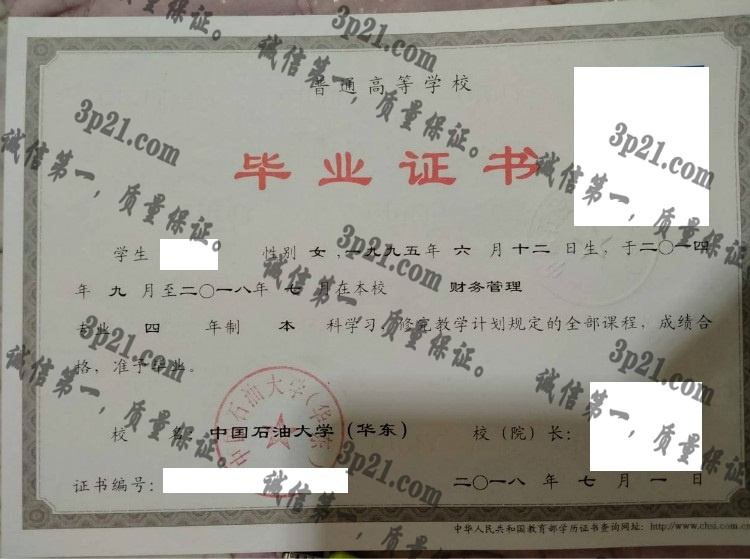 普通高等学校
毕业证书
学生 性别 女,一九九五年 六 月十二 日生,于二〇一四
年 九 月至二〇一八年 七 月在本校 财务管理
专业 四 年制 本 科学习,修完教学计划规定的全部课程,成绩合
格,准予毕业。
校 名:中国石油大学(华东) 校(院)长:
证书编号: 二〇一八 年 七 月 一 日
中华人民共和国教育部学历证书查询网址:http://www.chsi.com.cn
中国石油大学(华东)
3p21.com
诚信第一,质量保证。
3p21.com
诚信第一,质量保证。
3p21.com
诚信第一,质量保证。
3p21.com
诚信第一,质量保证。
3p21.com
诚信第一,质量保证。
3p21.com
诚信第一,质量保证。
3p21.com
诚信第一,质量保证。
3p21.com
诚信第一,质量保证。